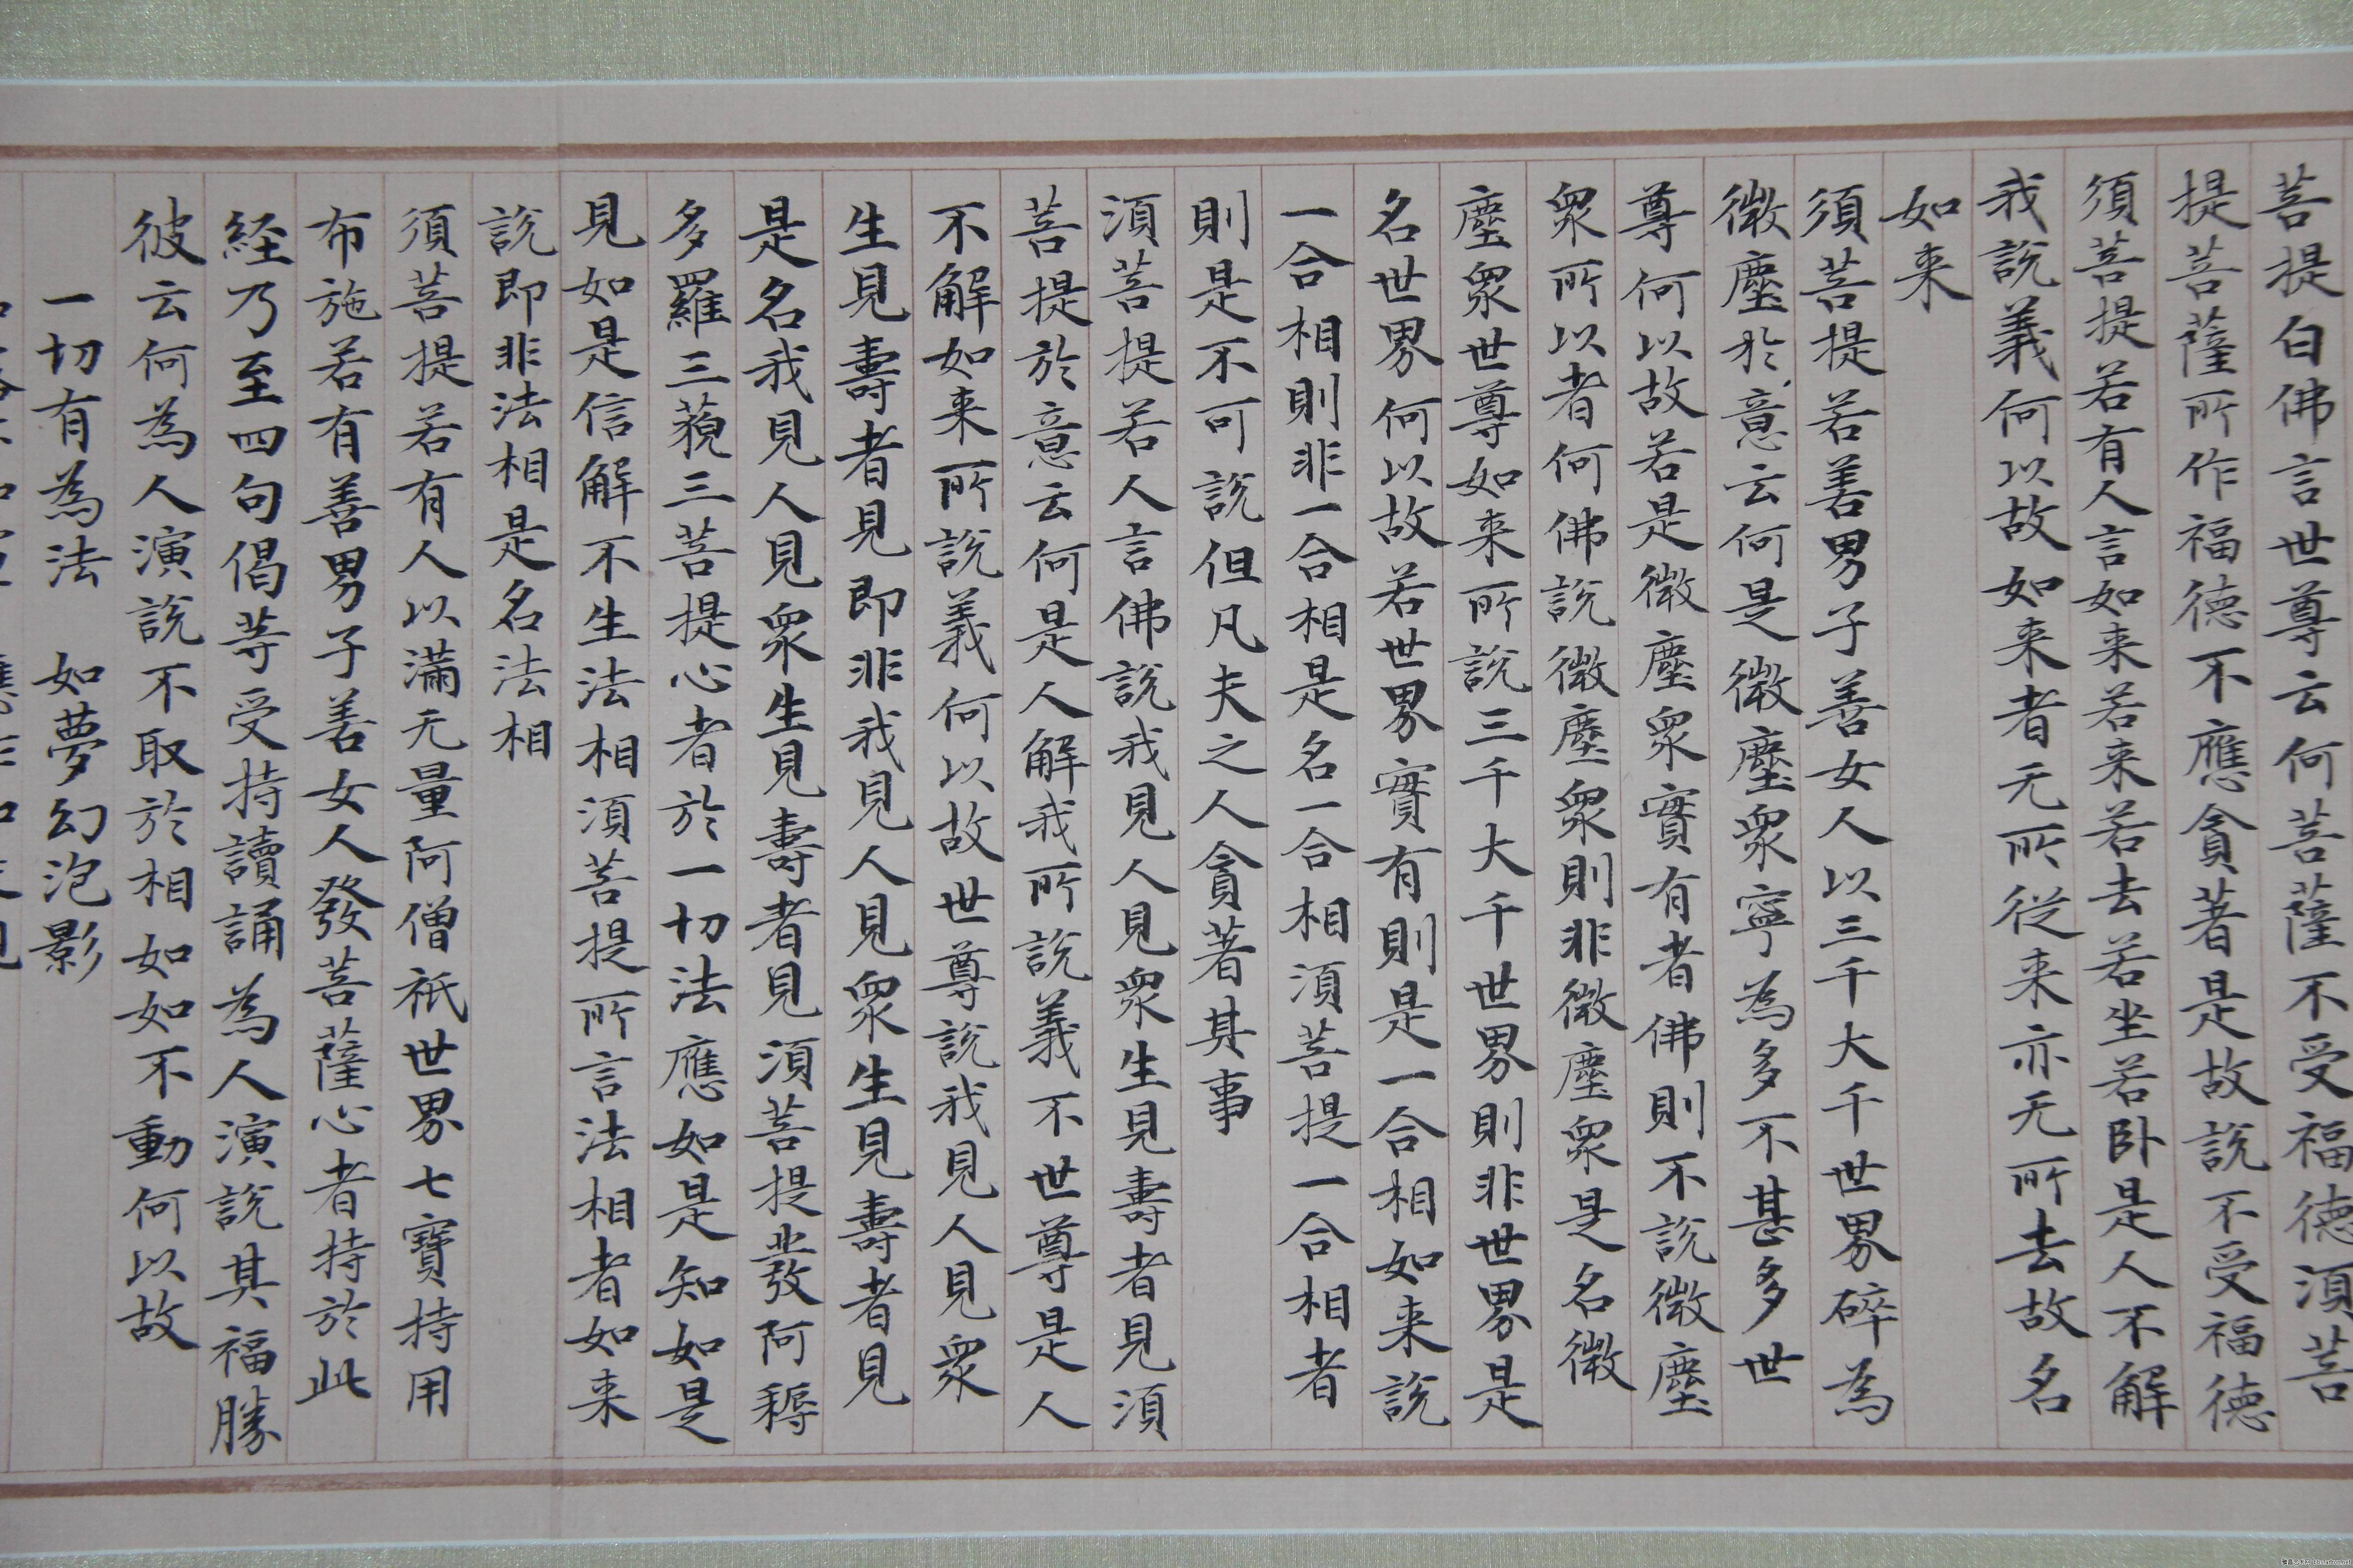 菩提白佛言世尊云何菩薩不受福德須菩
提菩薩所作福德不應貪著是故說不受福德
須菩提若有人言如来若来若去若坐若卧是人不解
我說義何以故如来者无所從来亦无所去故名
如来
須菩提若善男子善女人以三千大千世界碎為
微塵於意云何是微塵衆寧為多不甚多世
尊何以故若是微塵衆實有者佛則不說微塵
衆所以者何佛說微塵衆則非微塵衆是名微
塵衆世尊如来所說三千大千世界則非世界是
名世界何以故若世界實有則是一合相如来說
一合相則非一合相是名一合相須菩提一合相者
則是不可說但凡夫之人貪著其事
須菩提若人言佛說我見人見衆生見壽者見須
菩提於意云何是人解我所說義不世尊是人
不解如来所說義何以故世尊說我見人見衆
生見壽者見即非我見人見衆生見壽者見
是名我見人見衆生見壽者見須菩提發阿耨
多羅三藐三菩提心者於一切法應如是知如是
見如是信解不生法相須菩提所言法相者如来
說即非法相是名法相
須菩提若有人以滿无量阿僧祇世界七寶持用
布施若有善男子善女人發菩薩心者持於此
経乃至四句偈等受持讀誦為人演說其福勝
彼云何為人演說不取於相如如不動何以故
一切有為法 如夢幻泡影